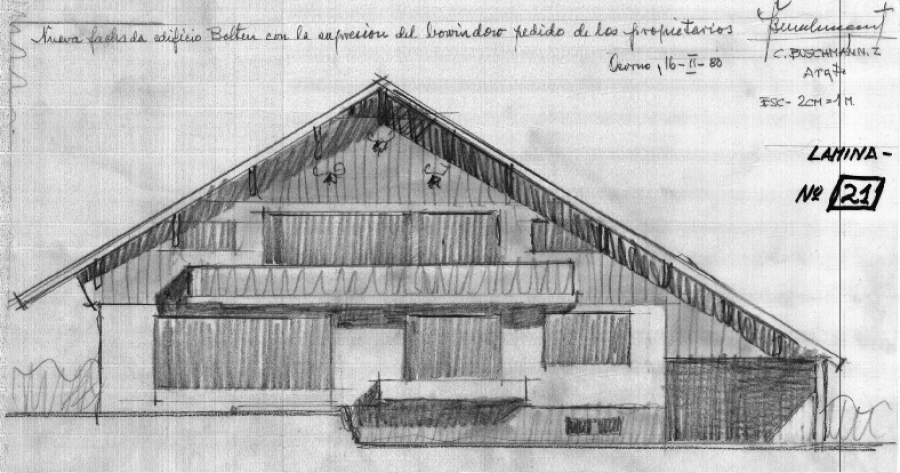 Nueva fachada edificio Bolten con la expresion del bowindow pedido de los propietarios
Osorno, 16-II-80
C. BUSCHMANN. Z
Arqto
ESC- 2CM=1M.
LAMINA-
Nº 21